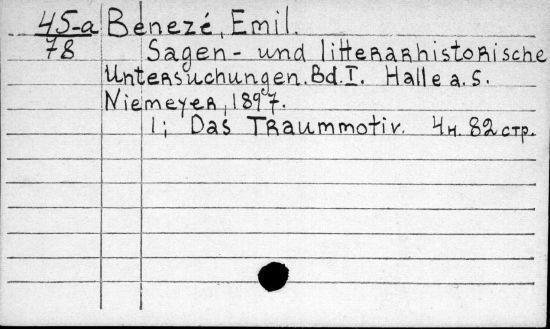 45-a Benezé, Emil.
78 Sagen- und litterarhistorische
Untersuchungen. Bd. I. Halle a. S.
Niemeyer, 1897.
1; Das Traummotiv. 4н. 82 стр.